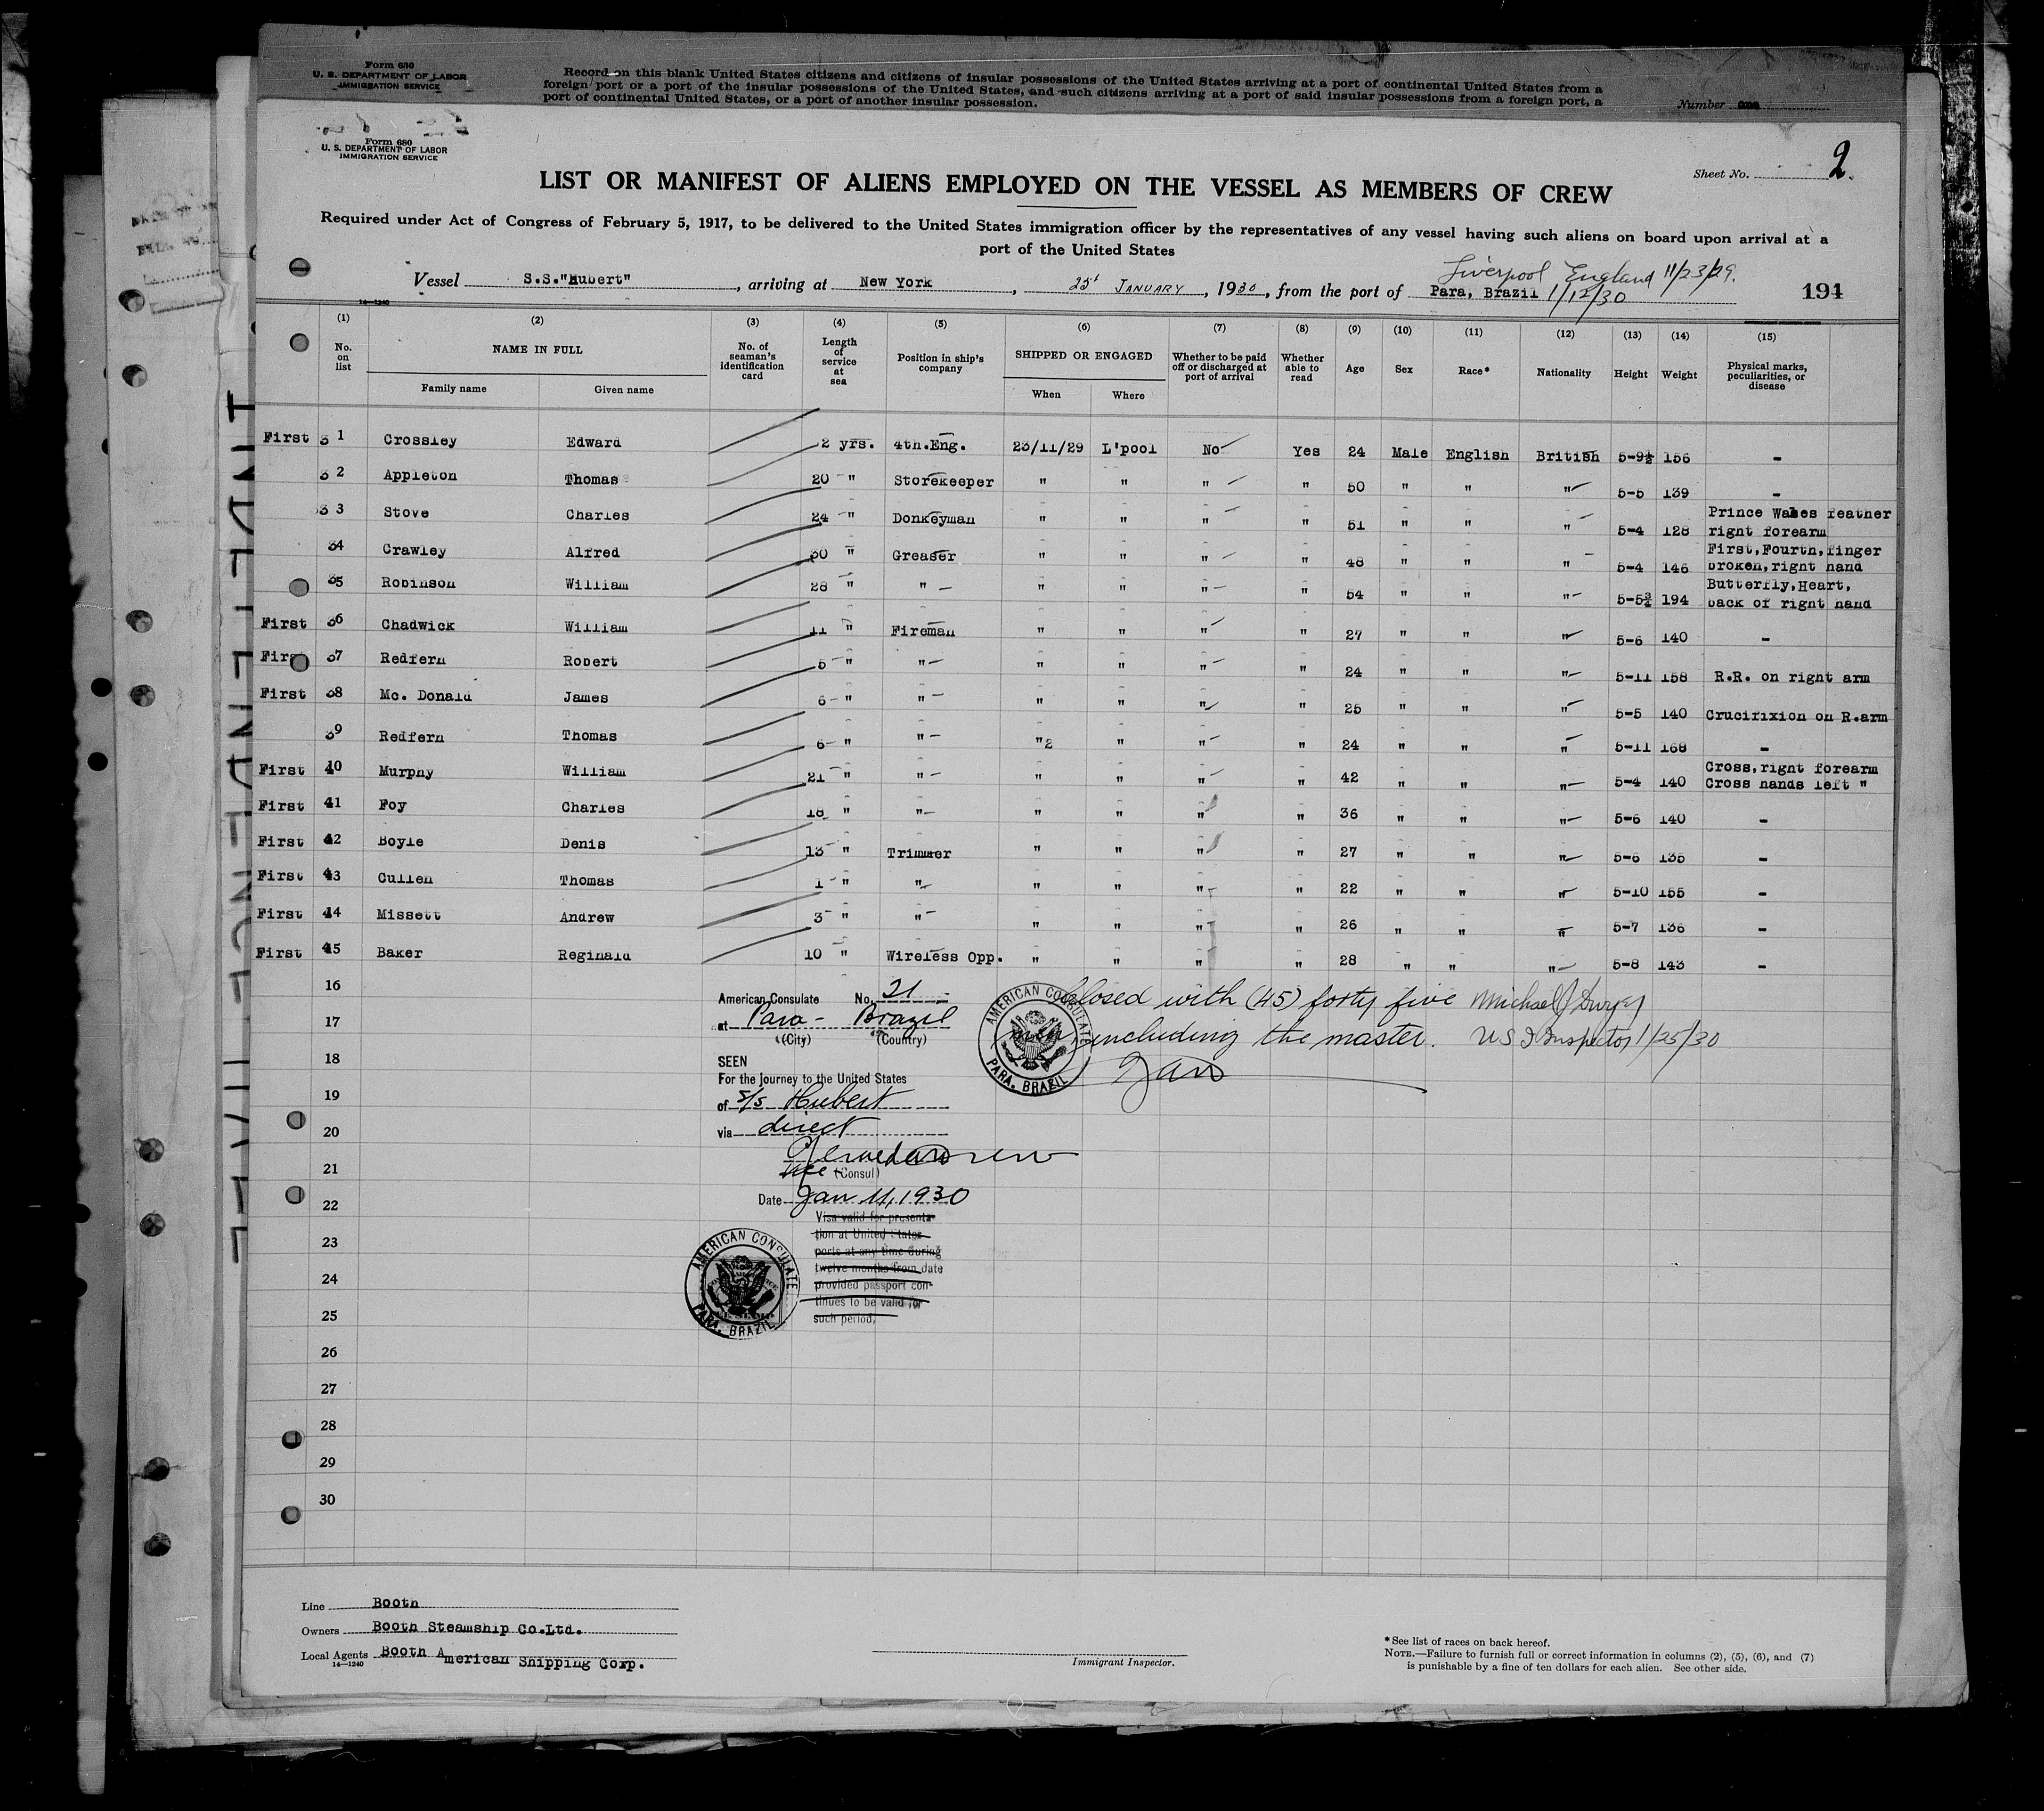 Form 630
U. S. DEPARTMENT OF LABOR
IMMIGRATION SERVICE
Record on this blank United States citizens and citizens of insular possessions of the United States arriving at a port of continental United States from a
foreign port or a port of the insular possessions of the United States, and such citizens arriving at a port of said insular possessions from a foreign port, a
port of continental United States, or a port of another insular possession.
Number one
Form 680
U. S. DEPARTMENT OF LABOR
IMMIGRATION SERVICE
Sheet No. 2.
LIST OR MANIFEST OF ALIENS EMPLOYED ON THE VESSEL AS MEMBERS OF CREW
Required under Act of Congress of February 5, 1917, to be delivered to the United States immigration officer by the representatives of any vessel having such aliens on board upon arrival at a
port of the United States
Liverpool England 11/23/29.
Vessel S.S."Hubert", arriving at New York, 25t JANUARY, 1930, from the port of Para, Brazil 1/12/30 191
14-1240
(1) (2) (3) (4) (5) (6) (7) (8) (9) (10) (11) (12) (13) (14) (15)
No. on list NAME IN FULL Family name Given name No. of seaman's identification card Length of service at sea Position in ship's company SHIPPED OR ENGAGED When Where Whether to be paid off or discharged at port of arrival Whether able to read Age Sex Race* Nationality Height Weight Physical marks, peculiarities, or disease
First 31 Crossley Edward 2 yrs. 4th.Eng. 23/11/29 L'pool No Yes 24 Male English British 5-9½ 156 -
32 Appleton Thomas 20 " Storekeeper " " " " 50 " " " 5-5 139 -
33 Stove Charles 24 " Donkeyman " " " " 51 " " " 5-4 128 Prince Wales feather right forearm
34 Crawley Alfred 30 " Greaser " " " " 48 " " " 5-4 146 First,Fourth,finger broken,right hand
35 Robinson William 28 " " " " " " 54 " " " 5-5¾ 194 Butterfly,Heart, back of right hand
First 36 Chadwick William 11 " Fireman " " " " 27 " " " 5-6 140 -
First 37 Redfern Robert 5 " " " " " " 24 " " " 5-11 158 R.R. on right arm
First 38 Mc. Donald James 6 " " " " " " 25 " " " 5-5 140 Crucifixion on R.arm
39 Redfern Thomas 6 " " "2 " " " 24 " " " 5-11 168 -
First 40 Murphy William 21 " " " " " " 42 " " " 5-4 140 Cross,right forearm Cross hands left "
First 41 Foy Charles 18 " " " " " " 36 " " " 5-6 140 -
First 42 Boyle Denis 13 " Trimmer " " " " 27 " " " 5-6 135 -
First 43 Cullen Thomas 1 " " " " " " 22 " " " 5-10 155 -
First 44 Missett Andrew 3 " " " " " " 26 " " " 5-7 136 -
First 45 Baker Reginald 10 " Wireless Opp. " " " " 28 " " " 5-8 143 -
16
17
18
19
20
21
22
23
24
25
26
27
28
29
30
American Consulate No. 21
at Para - Brazil
(City) (Country)
SEEN
For the journey to the United States
of S/S Hubert
via direct
Vice (Consul)
Date Jan 11, 1930
Visa valid for presenta-
tion at United States
ports at any time during
twelve months from date
provided passport con-
tinues to be valid for
such period.
AMERICAN CONSULATE
PARA. BRAZIL
AMERICAN CONSULATE
PARA. BRAZIL
closed with (45) forty five Michael J Dwyer
men including the master. U S I Inspector 1/25/30
Line Booth
Owners Booth Steamship Co.Ltd.
Local Agents Booth American Shipping Corp.
14-1240
Immigrant Inspector.
*See list of races on back hereof.
NOTE.—Failure to furnish full or correct information in columns (2), (5), (6), and (7)
is punishable by a fine of ten dollars for each alien. See other side.